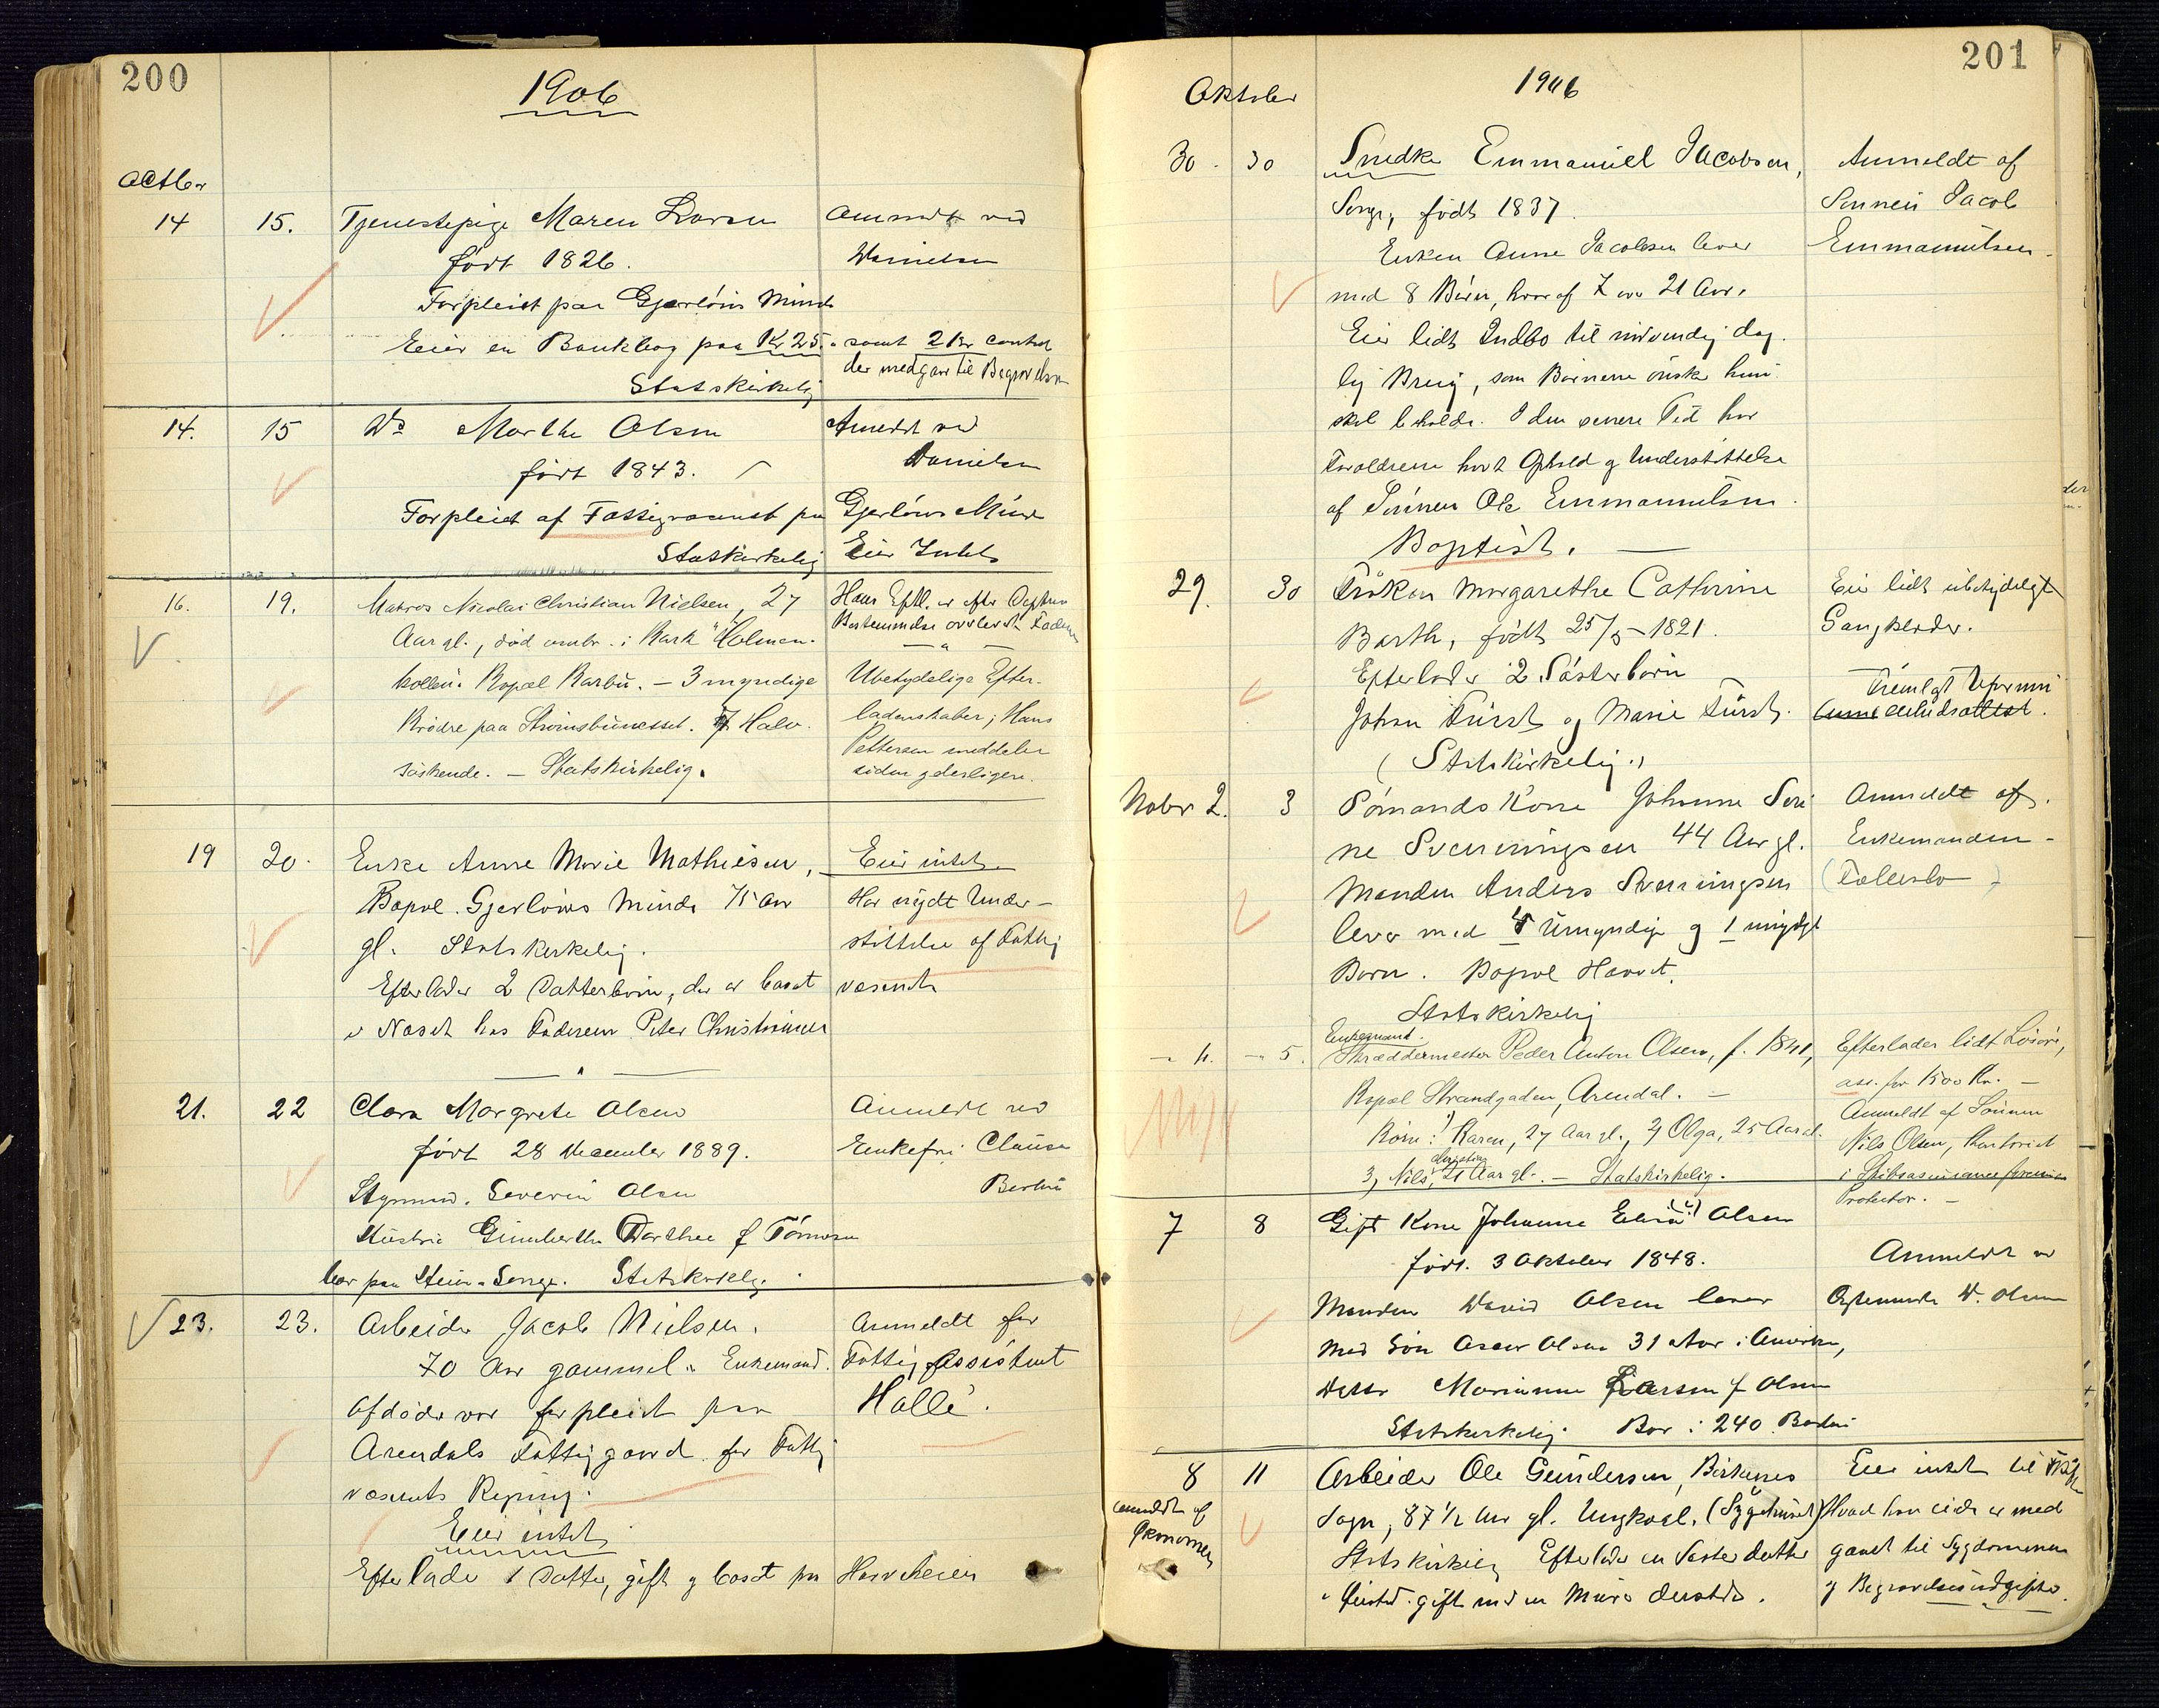 200
1906
Octbr
14 15. Tjenestepige Maren Larsen Anmeldt ved
født 1826. Danielsen
Forpleiet paa Gjerløws Minde
Eier en Bankbog paa Kr 25. samt 2 Kr contant
der medgaar til Begravelsen
Statskirkelig
14. 15 Do Marthe Olsen Anmeldt ved
født 1843. Danielsen
Forpleiet af Fattigvæsenet paa Gjerløws Minde
Statskirkelig Eier Intet
16. 19. Matros Nicolai Christian Nielsen, 27 Hans Eftl. er efter Skifterett
Aar gl., død ombr. i Bark "Holmen- Bestemmelse overlevert Faderen
kollen". Bopæl Barbu. – 3 myndige Ubetydelige Efter-
Brødre paa Strømsbunesset. 7 Halv- ladenskaber; Hans
søskende. – Statskirkelig. Pettersen meddeler
siden yderligere.
19 20. Enke Anne Marie Mathiesen, Eier intet
Bopæl Gjerløws Minde 75 Aar Har nydt Under-
gl. Statskirkelig. støttelse af Fattig
Efterlader 2 Datterbørn, der er bosat væsenet
i Næset hos Faderen Peter Christiansen
21. 22 Clara Margrete Olsen Anmeldt ved
født 28 December 1889. Enkefru Clausen
Styrmand Severin Olsen Barbu
Hustru Gunberthe Dorthea f Tønnesen
bor paa Steen-Songe. Statskirkelig.
23. 23. Arbeider Jacob Nielsen. Anmeldt før
70 Aar gammel. Enkemand. Fattigassistent
Afdøde var forpleiet paa Halle.
Arendals Fattiggaard for Fattig
væsenets Regning.
Eier intet
Efterlader 1 Datter, gift og bosat paa Havsheien
201
Oktober 1906
30 30 Snedker Emmanuel Jacobsen, Anmeldt af
Songe, født 1837. Sønnen Jacob
Enken Anne Jacobsen lever Emmanuelsen.
med 8 Børn, hvoraf 7 over 21 Aar.
Eier lidt Indbo til nødvendig dag-
lig Brug, som Børnene ønsker hun
skal beholde. I den senere Tid har
Forældrene havt Ophold og Understøttelse
af Sønnen Ole Emmanuelsen.
Baptist.
29. 30 Frøken Margarethe Cathrine Eier lidt ubetydelige
Barth, født 25/5 1821. Gangklæder.
Efterlader 2 Søsterbørn Fremlagt
Johan Fürst og Marie Fürst.
(Statskirkelig.)
Novbr 2. 3 Sømandskone Johanne Seri- Anmeldt af
ne Svenningsen 44 Aar gl. Enkemanden
Manden Anders Svenningsen
lever med Umyndige og 1 myndigt
Børn. Bopæl Havet.
Statskirkelig
Enkemand.
5. Skræddermester Peder Anton Olsen, f. 1841, Efterlader lidt Løsøre,
Bopæl Strandgaden, Arendal. – ass. for 1500 Kr. –
Børn: 1) Karen, 27 Aar gl., 2) Olga, 25 Aar gl. Anmeldt af Sønnen
3, Nils, 21 Aar gl. – Statskirkelig. Nils Olsen, Kontorist
i Skibsassuranceforeningen
Protector. –
7 8 Gift Kone Johanne Elisa Olsen
født 3 Oktober 1848. Anmeldt ved
Manden David Olsen lever Ægtemanden D. Olsen
med Søn Oscar Olsen 31 Aar i Amerika,
Datter Marianne Larsen f Olsen
Statskirkelig Bor i 240 Barbu
8 11 Arbeider Ole Gundersen, Birkenes Eier intet til
anmeldt af Sogn, 87 1/2 Aar gl. Ungkarl. (Sygehuset) Hvad han eide er med
Økonomen Statskirkelig Efterlader en Søsterdatter gaaet til Sygdommen
i Øiestad gift med en Murer dersteds. og Begravelsesudgifter.